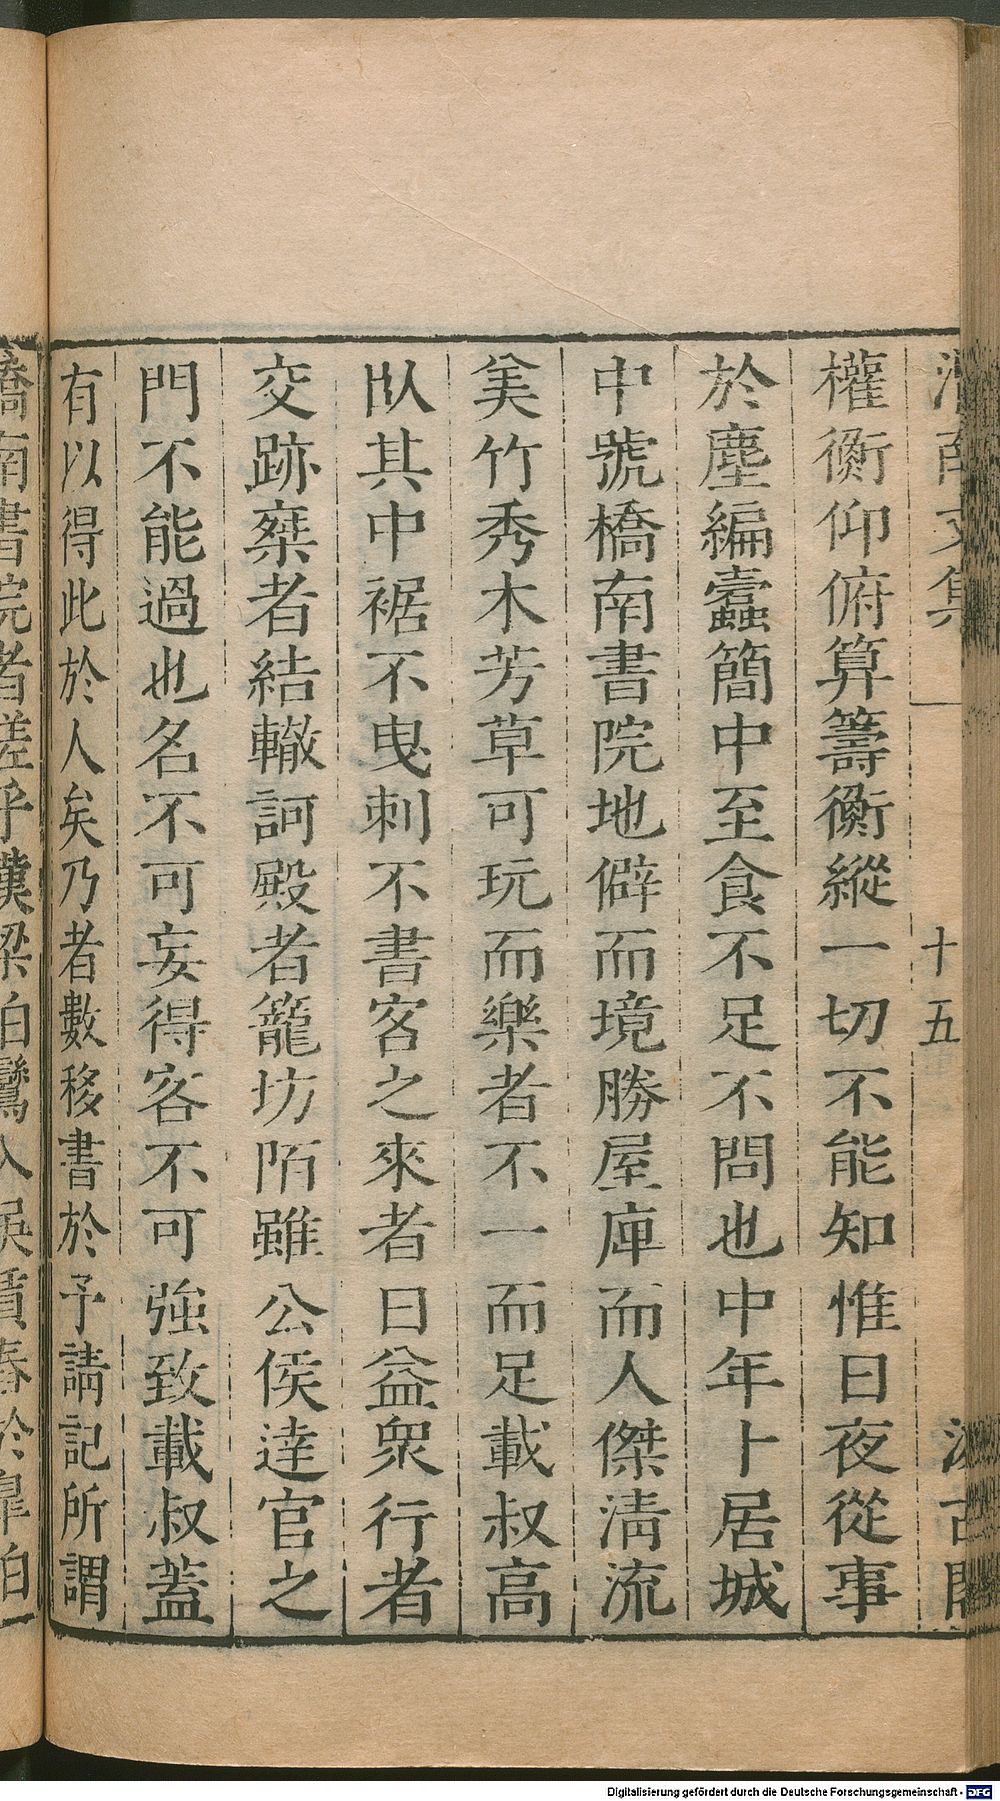 渭南文集　十五　汲古閣
權衡仰俯算籌衡縱一切不能知惟日夜從事
於塵編蠹簡中至食不足不問也中年卜居城
中號橋南書院地僻而境勝屋庳而人傑清流
美竹秀木芳草可玩而樂者不一而足載叔高
臥其中裾不曳刺不書客之來者日益眾行者
交跡椉者結轍訶殿者籠坊陌雖公侯達官之
門不能過也名不可妄得客不可強致載叔蓋
有以得此於人矣乃者數移書於予請記所謂
橋南書院者嗟乎漢梁伯鸞入吳賃舂於臯伯
Digitalisierung gefördert durch die Deutsche Forschungsgemeinschaft - DFG